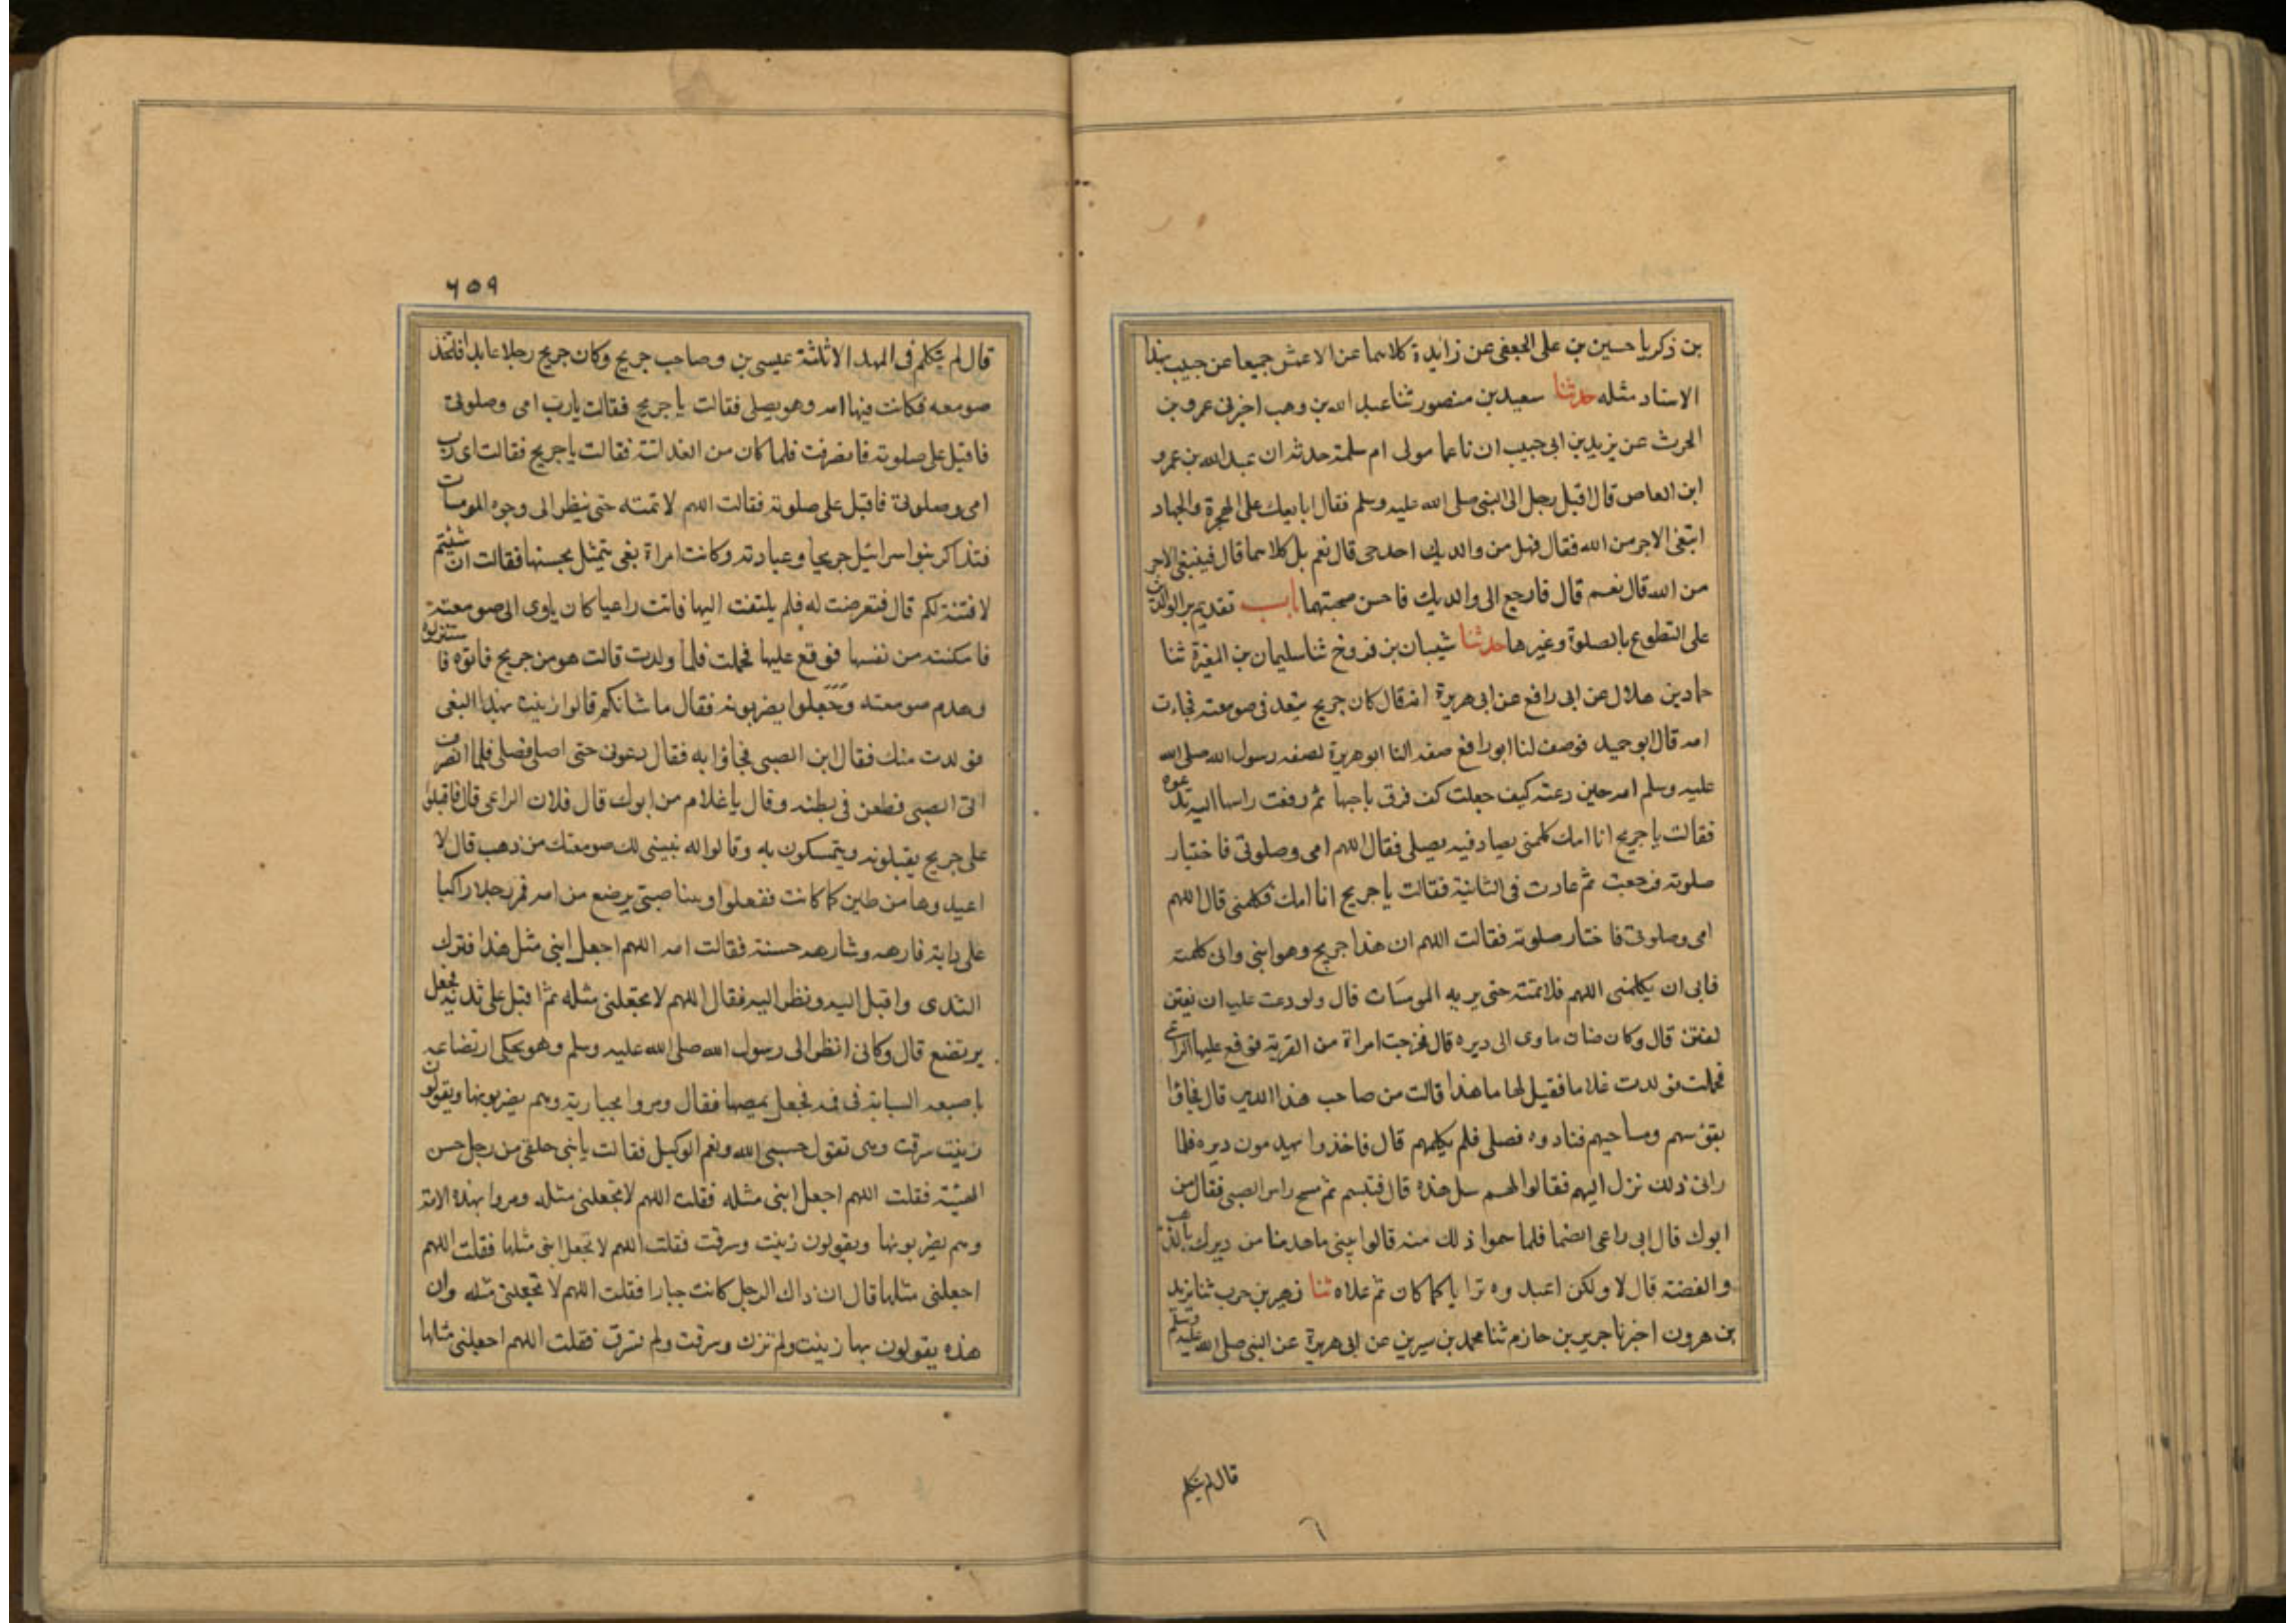 بن ذكريا حسين بن على الجعفى عن زايدة كلاهما عن الاعمش جميعا عن حبيب بهذا
الاسناد مثله حدثنا سعيد بن منصور ثنا عبد الله بن وهب اخبرنى عمرو بن
الحرث عن يزيد بن ابى حبيب ان ناعما مولى ام سلمة حدثه ان عبد الله بن عمرو
ابن العاص قال اقبل رجل الى النبى صلى الله عليه وسلم فقال ابايعك على الهجرة والجهاد
ابتغى الاجر من الله فقال فهل من والديك احد حى قال نعم بل كلاهما قال فتبتغى الاجر
من الله قال نعم قال فارجع الى والديك فاحسن صحبتهما باب تقديم بر الوالدين
على التطوع بالصلوة وغيرها حدثنا شيبان بن فروخ ثنا سليمان بن المغيرة ثنا
حماد بن هلال عن ابى رافع عن ابى هريرة انه قال كان جريج يتعبد فى صومعته فجاءت
امه قال ابو حميد فوصف لنا ابو رافع صفه النا ابو هريرة لصفه رسول الله صلى الله
عليه وسلم امه حين دعته كيف جعلت كف فرق باجبها ثم رفعت راسها اليه تدعوه
فقالت يا جريج انا امك كلمنى يصادفيه يصلى فقال اللهم امى وصلوتى فاختيار
صلوته فرجعت ثم عادت فى الثانية فقالت يا جريج انا امك فكلمنى قال اللهم
امى وصلوتى فاختار صلوته فقالت اللهم ان هذا جريج وهو ابنى وانى كلمته
فابى ان يكلمنى اللهم فلا تمته حتى يريه المومسات قال ولو دعت عليه ان يفتن
لفتن قال وكان ضان ماوى الى ديره قال فخرجت امراة من القرية فوقع عليها الراعى
فحملت فولدت غلاما فقيل لها ما هذا قالت من صاحب هذا الدير قال فجاؤا
بفؤسهم ومساحيهم فنادوه فصلى فلم يكلمهم قال فاخذوا يهدمون ديره فلما
راى ذلك نزل اليهم فقالوا لهم سل هذه قال فتبسم ثم مسح راس الصبى فقال من
ابوك قال ابى راعى الضا فلما سمعوا ذلك منه قالوا نبنى ما هدمنا من ديرك بالذهب
والفضة قال لا ولكن اعيدوه ترابا كما كان ثم علاه ثنا زهير بن حرب ثنا يزيد
بن هرون اخبرنا جرير بن حازم ثنا محمد بن سيرين عن ابى هريرة عن النبى صلى الله عليه وسلم
قال لم يتكلم
٦
٦٥٩
قال لم يتكلم فى المهد الا ثلثة عيسى بن وصاحب جريج وكان جريج رجلا عابدا فاتخذ
صومعه فكانت فيها امه وهو يصلى فقالت يا جريج فقالت يارب امى وصلوتى
فاقبل على صلوته فانصرفت فلما كان من الغد اتته فقالت يا جريج فقالت اى رب
امى وصلوتى فاقبل على صلوته فقالت اللهم لا تمته حتى ينظر الى وجوه المومسات
فتذاكر بنو اسرائيل جريجا وعبادته وكانت امراة بغى يتمثل بحسنها فقالت ان شئتم
لافتننه لكم قال فتعرضت له فلم يلتفت اليها فاتت راعيا كان ياوى الى صومعته
فامكنته من نفسها فوقع عليها فحملت فلما ولدت قالت هو من جريج فاتوه فاستنزلوه
وهدم صومعته وجعلوا يضربونه فقال ما شانكم قالوا زنيت بهذا البغى
فولدت منك فقال اين الصبى فجاؤا به فقال دعونى حتى اصلى فصلى فلما انصرف
اتى الصبى فطعن فى بطنه وقال يا غلام من ابوك قال فلان الراعى قال فاقبلوا
على جريج يقبلونه ويتمسكون به وقالوا له نبينى لك صومعتك من ذهب قال لا
اعيدوها من طين كما كانت ففعلوا وبينا صبى يرضع من امه فمر رجلا راكبا
على دابة فارهه وشارهه حسنة فقالت امه اللهم اجعل ابنى مثل هذا فترك
الثدى واقبل اليه ونظر اليه فقال اللهم لا تجعلنى مثله ثم اقبل على ثديه فجعل
يرتضع قال وكانى انظر الى رسول الله صلى الله عليه وسلم وهو يحكى ارتضاعه
باصبعه السبابة فى فمه فجعل يمصها فقال ومروا بجارية وهم يضربونها ويقولون
زنيت سرقت وهى تقول حسبى الله ونعم الوكيل فقالت يا بنى حلقى من رجل حسن
الهيئة فقلت اللهم اجعل ابنى مثله فقلت اللهم لا تجعلنى مثله ومروا بهذه الامة
وهم يضربونها ويقولون زنيت وسرقت فقلت اللهم لا تجعل ابنى مثلها فقلت اللهم
اجعلنى مثلها قال ان ذاك الرجل كانت جبارا فقلت اللهم لا تجعلنى مثله وان
هذه يقولون بها زنيت ولم تزن وسرقت ولم تسرق فقلت اللهم اجعلنى مثلها